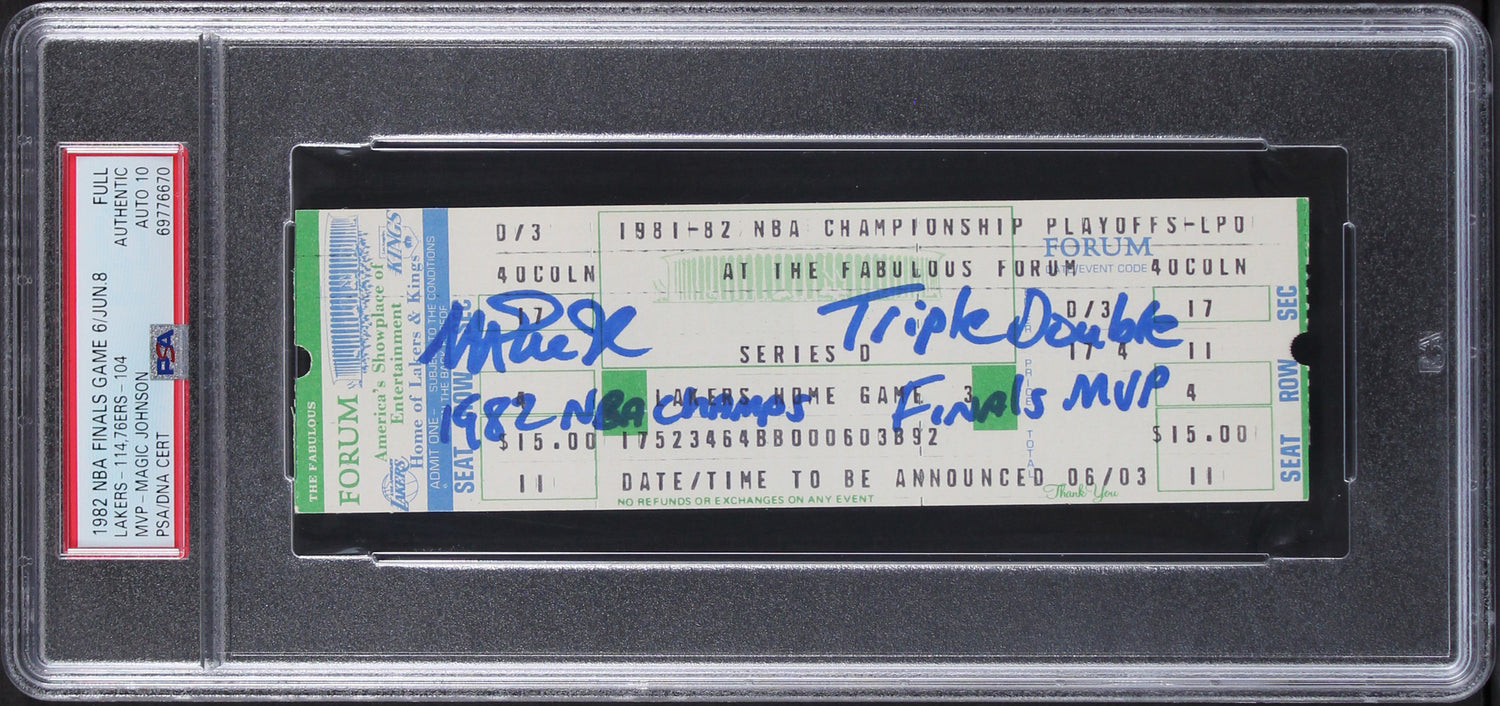 1982 NBA FINALS GAME 6/JUN.8 FULL
LAKERS - 114,76ERS - 104 AUTHENTIC
MVP - MAGIC JOHNSON AUTO 10
PSA/DNA CERT 69776670
PSA
THE FABULOUS
FORUM
America's Showplace of
Entertainment
Home of Lakers & Kings
KINGS
LAKERS
ADMIT ONE - SUBJECT TO THE CONDITIONS
SEC
ROW
SEAT
D/3
40COLN
17
4
$15.00
11
1981-82 NBA CHAMPIONSHIP PLAYOFFS-LPD
AT THE FABULOUS FORUM
SERIES D
LAKERS HOME GAME 3
17523464BB000603B92
DATE/TIME TO BE ANNOUNCED 06/03
NO REFUNDS OR EXCHANGES ON ANY EVENT
Thank You
FORUM
DATE/EVENT CODE
D/3
17 4
PRICE
TOTAL
40COLN
17
11
4
$15.00
11
SEC
ROW
SEAT
Triple Double
1982 NBA Champs
Finals MVP